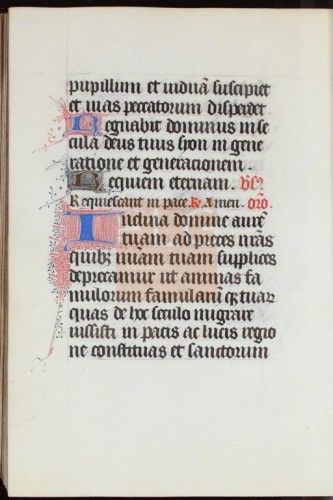 pupillum et viduā suscipiet
et vias peccatorum disperdet
Regnabit dominus in se
cula deus tuus syon in gene
ratione et generacionem.
Requiem eternam. vs̄
Requiescant in pace. R̷ Amen. orō
Inclina domine aurē
tuam ad preces nrās
quibȝ miām tuam supplices
deprecamur ut animas fa
mulorum famularūqȝ tuarȝ
quas de hoc seculo migrare
iussisti in pacis ac lucis regio
ne constituas et sanctorum